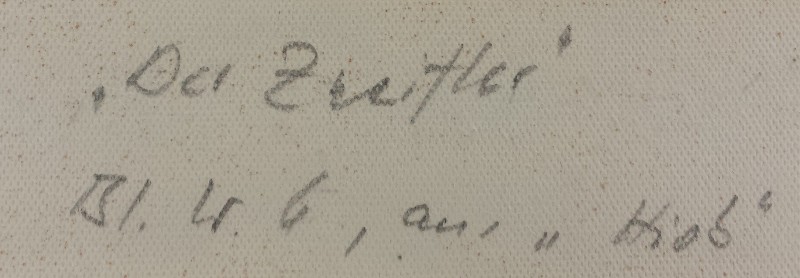 „Der Zweifler“
Bl. Nr. 6, aus „Hiob“